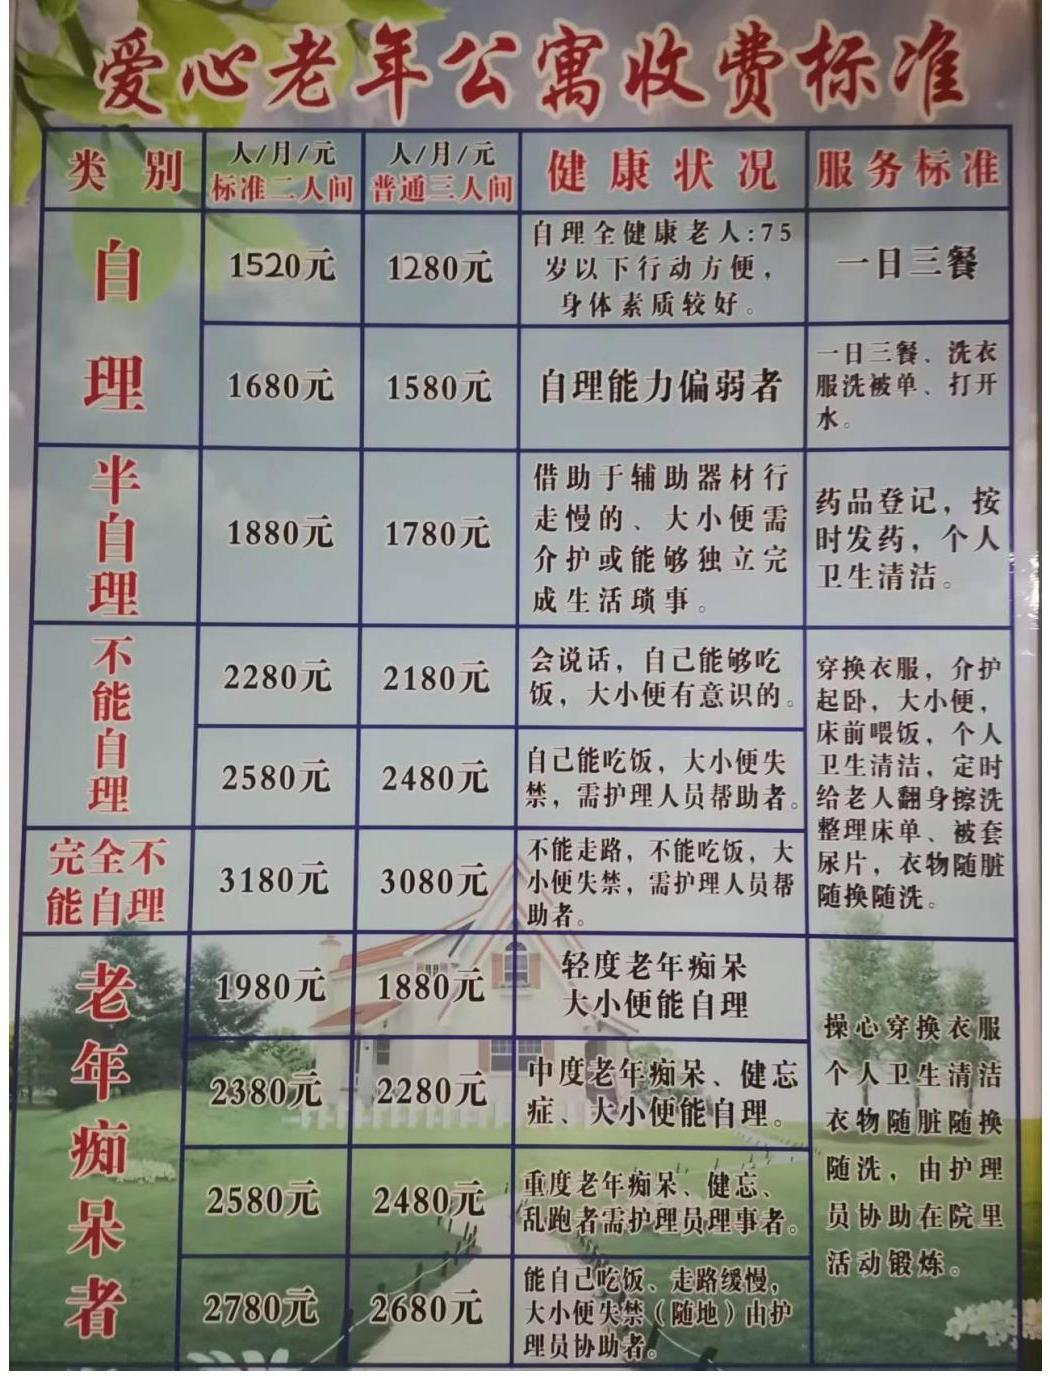 爱心老年公寓收费标准
类 别
人/月/元
标准二人间
人/月/元
普通三人间
健康状况
服务标准
自
理
1520元
1280元
自理全健康老人:75
岁以下行动方便，
身体素质较好。
一日三餐
1680元
1580元
自理能力偏弱者
一日三餐、洗衣
服洗被单、打开
水。
半
自
理
1880元
1780元
借助于辅助器材行
走慢的、大小便需
介护或能够独立完
成生活琐事。
药品登记，按
时发药，个人
卫生清洁。
不
能
自
理
2280元
2180元
会说话，自己能够吃
饭，大小便有意识的。
2580元
2480元
自己能吃饭，大小便失
禁，需护理人员帮助者。
穿换衣服，介护
起卧，大小便，
床前喂饭，个人
卫生清洁，定时
给老人翻身擦洗
整理床单、被套
尿片，衣物随脏
随换随洗。
完全不
能自理
3180元
3080元
不能走路，不能吃饭，大
小便失禁，需护理人员帮
助者。
老
年
痴
呆
者
1980元
1880元
轻度老年痴呆
大小便能自理
2380元
2280元
中度老年痴呆、健忘
症、大小便能自理。
2580元
2480元
重度老年痴呆、健忘、
乱跑者需护理员理事者。
2780元
2680元
能自己吃饭、走路缓慢，
大小便失禁（随地）由护
理员协助者。
操心穿换衣服
个人卫生清洁
衣物随脏随换
随洗，由护理
员协助在院里
活动锻炼。